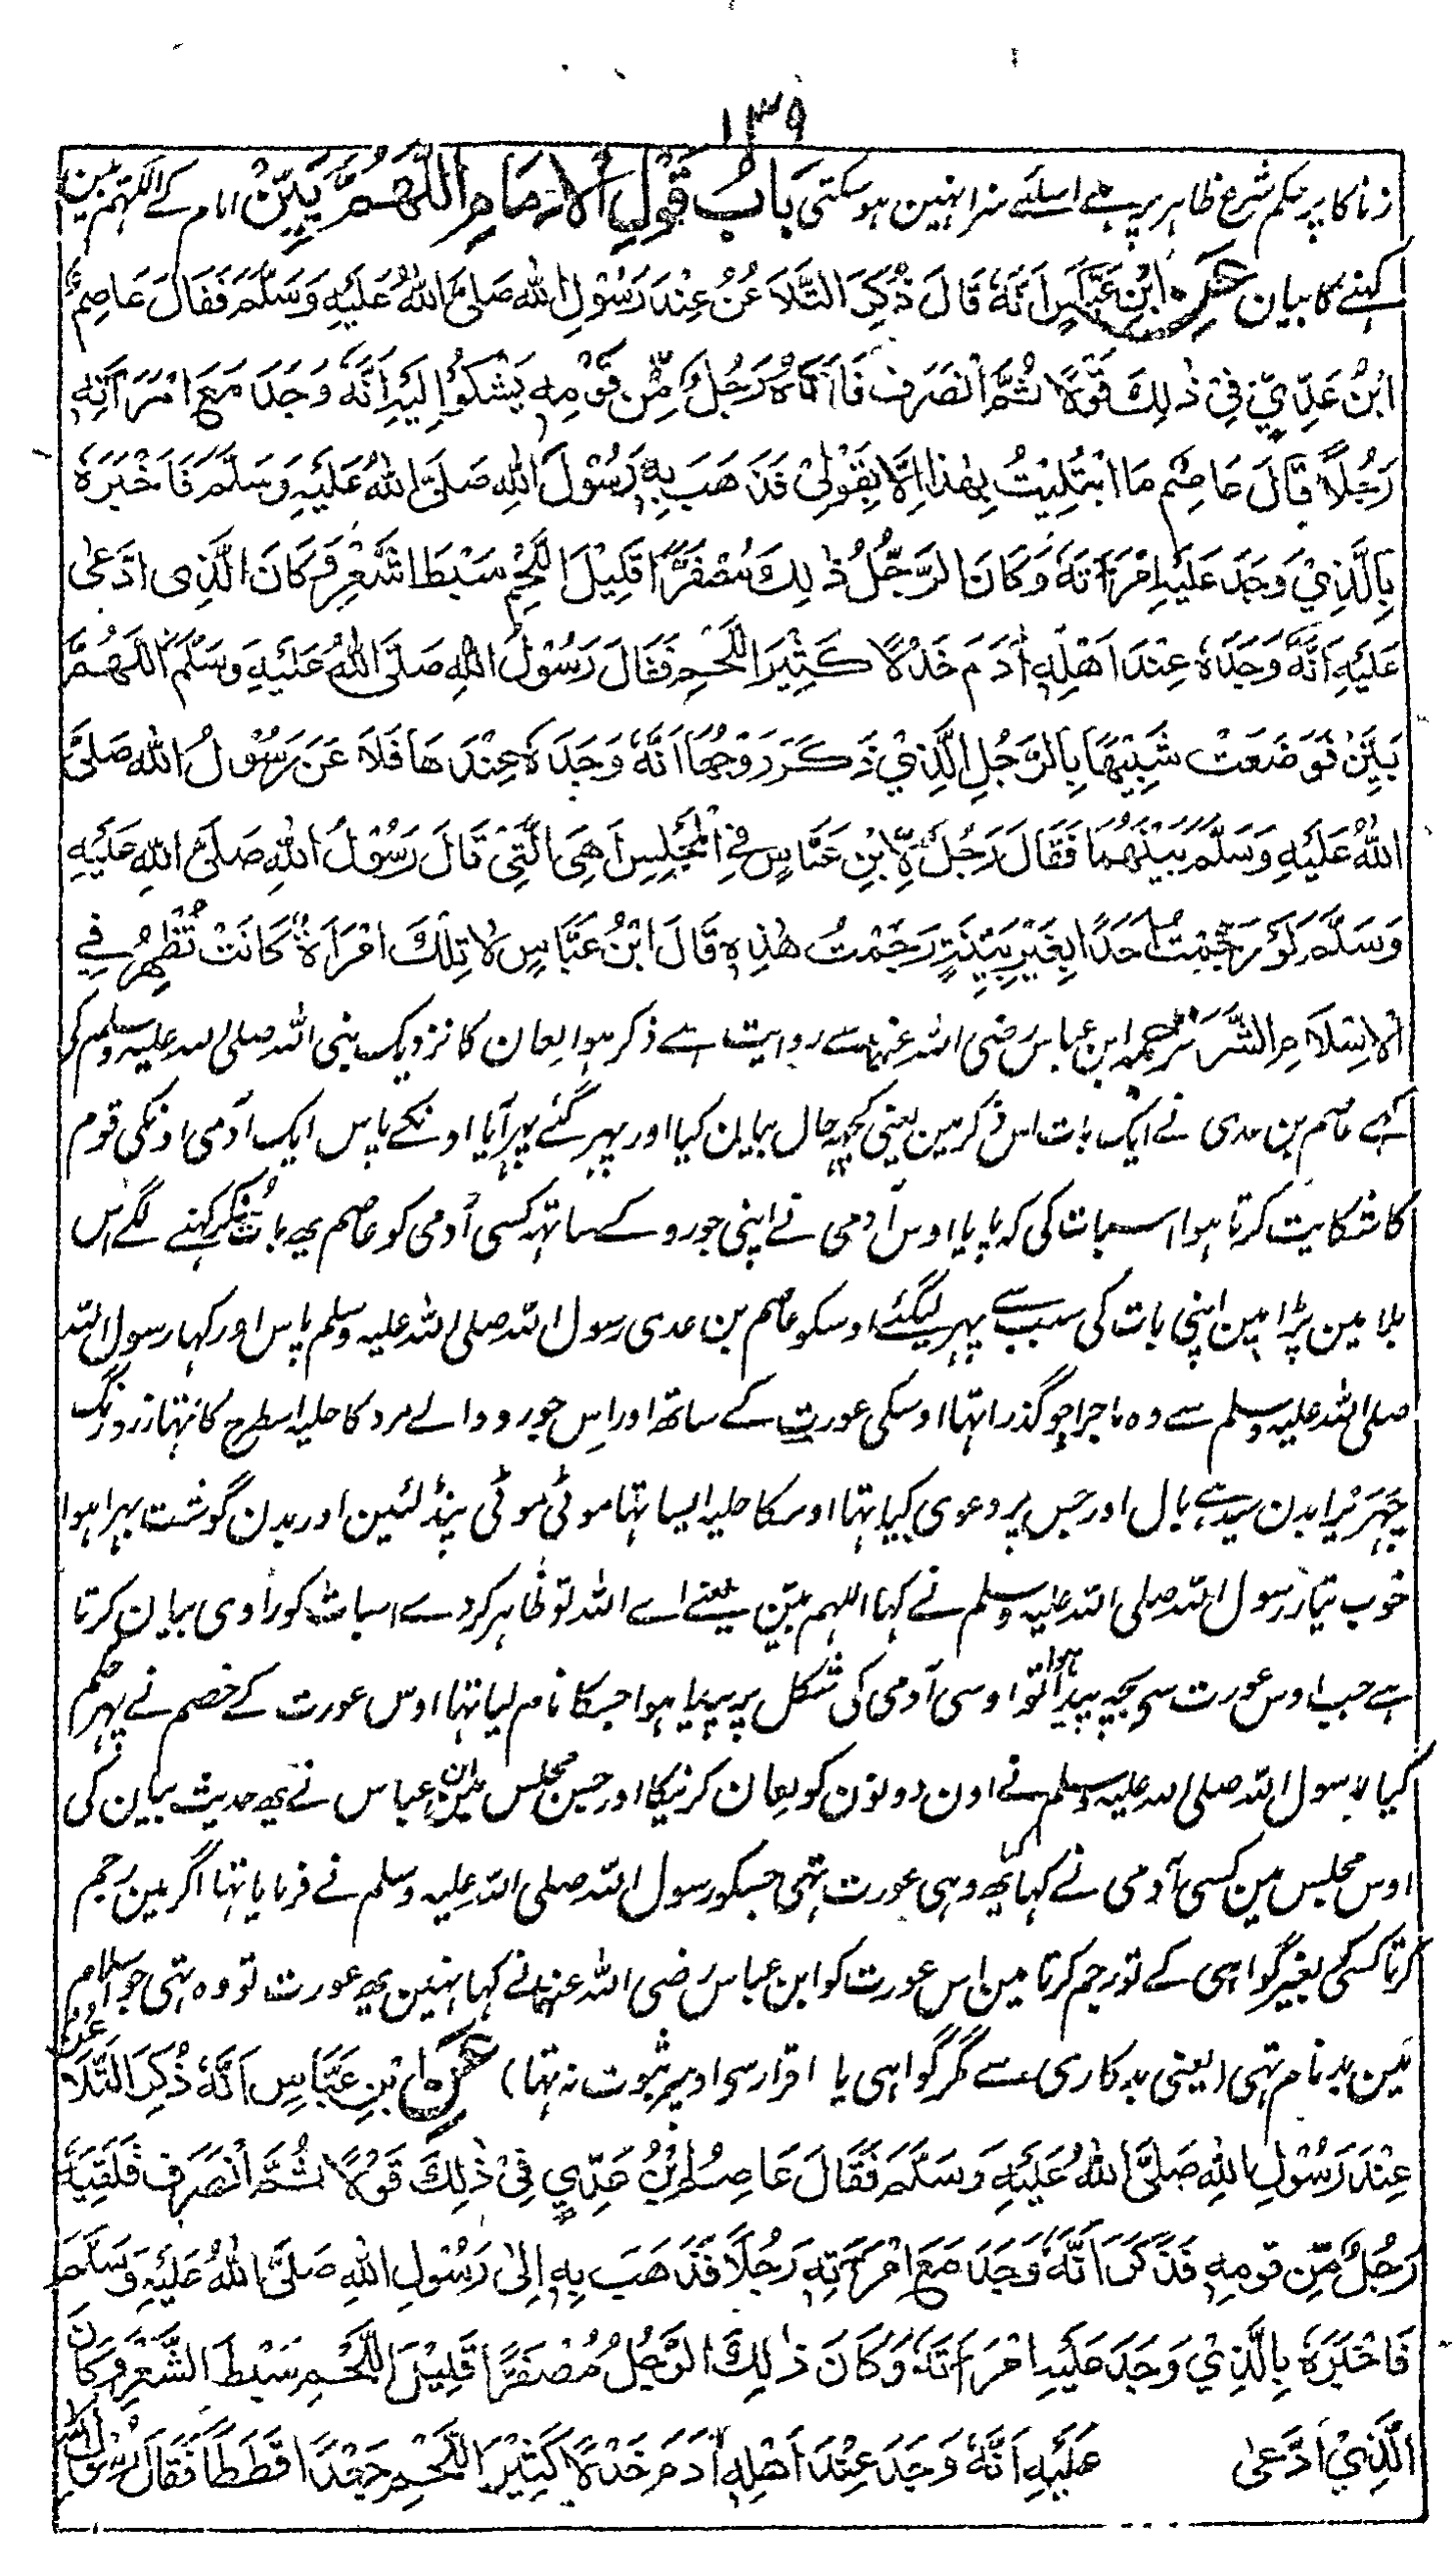 ۱۳۹
زنا کا پر حکم شرع ظاہر پر ہے اسلئے سزا نہین ہو سکتی بَابُ قَوْلِ الْاِمَامِ اللّٰهُمَّ بَيِّنْ امام کے اللہم بین
کہنے کا بیان عَنِ ابْنِ عَبَّاسٍ اَنَّهٗ قَالَ ذُكِرَ التَّلَاعُنُ عِنْدَ رَسُوْلِ اللّٰهِ صَلَّى اللّٰهُ عَلَيْهِ وَسَلَّمَ فَقَالَ عَاصِمُ
ابْنُ عَدِيٍّ فِيْ ذٰلِكَ قَوْلًا ثُمَّ انْصَرَفَ فَاَتَاهُ رَجُلٌ مِّنْ قَوْمِهٖ يَشْكُوْا اِلَيْهِ اَنَّهٗ وَجَدَ مَعَ امْرَاَتِهٖ
رَجُلًا قَالَ عَاصِمٌ مَا ابْتُلِيْتُ بِهٰذَا اِلَّا بِقَوْلِيْ فَذَهَبَ بِهٖ رَسُوْلَ اللّٰهِ صَلَّى اللّٰهُ عَلَيْهِ وَسَلَّمَ فَاَخْبَرَهٗ
بِالَّذِيْ وَجَدَ عَلَيْهِ امْرَاَتَهٗ وَكَانَ الرَّجُلُ ذٰلِكَ مُصْفَرًّا قَلِيْلَ اللَّحْمِ سَبْطَ الشَّعْرِ وَكَانَ الَّذِى ادَّعٰى
عَلَيْهِ اَنَّهٗ وَجَدَهٗ عِنْدَ اَهْلِهٖ اٰدَمَ خَدْلًا كَثِيْرَ اللَّحْمِ فَقَالَ رَسُوْلُ اللّٰهِ صَلَّى اللّٰهُ عَلَيْهِ وَسَلَّمَ اَللّٰهُمَّ
بَيِّنْ فَوَضَعَتْ شَبِيْهًا بِالرَّجُلِ الَّذِيْ ذَكَرَ زَوْجُهَا اَنَّهٗ وَجَدَهٗ عِنْدَهَا فَلَاعَنَ رَسُوْلُ اللّٰهِ صَلَّى
اللّٰهُ عَلَيْهِ وَسَلَّمَ بَيْنَهُمَا فَقَالَ رَجُلٌ لِّابْنِ عَبَّاسٍ فِي الْمَجْلِسِ اَهِيَ الَّتِيْ قَالَ رَسُوْلُ اللّٰهِ صَلَّى اللّٰهِ عَلَيْهِ
وَسَلَّمَ لَوْ رَجَمْتُ اَحَدًا بِغَيْرِ بَيِّنَةٍ رَجَمْتُ هٰذِهٖ قَالَ ابْنُ عَبَّاسٍ لَا تِلْكَ امْرَاَةٌ كَانَتْ تُظْهِرُ فِي
الْاِسْلَامِ السُّوْءَ ترجمہ ابن عباس رضی اللہ عنہما سے روایت ہے ذکر ہوا لعان کا نزدیک نبی اللہ صلی اللہ علیہ وسلم کے
کہے عاصم بن عدی نے ایک بات اس ذکر مین یعنی کچہہ حال بیان کیا اور پہر گئے پہر آیا اونکے پاس ایک آدمی اونکی قوم
کا شکایت کرتا ہوا اسبات کی کہ پایا اوس آدمی نے اپنی جورو کے ساتہہ کسی آدمی کو عاصم یہ بات سنکر کہنے لگے اس
بلا مین پڑا مین اپنی بات کی سبب سے پہر لیگئے اوسکو عاصم بن عدی رسول اللہ صلی اللہ علیہ وسلم پاس اور کہا رسول اللہ
صلی اللہ علیہ وسلم سے وہ ماجرا جو گذرا تہا اوسکی عورت کے ساتھ اور اس جورو والے مرد کا حلیہ اسطرح کا تہا زرد رنگ
چہریرا بدن سیدہے بال اور جس پر دعوی کیا تہا اوسکا حلیہ ایسا تہا موٹی موٹی پنڈلئین اور بدن گوشت بہرا ہوا
خوب تیار رسول اللہ صلی اللہ علیہ وسلم نے کہا اللہم بین یعنے اے اللہ تو ظاہر کر دے اسبات کو راوی بیان کرتا
ہے جب اوس عورت سی بچہ پیدا ہوا تو اوسی آدمی کی شکل پر پیدا ہوا جسکا نام لیا تہا اوس عورت کے خصم نے پہر حکم
کیا رسول اللہ صلی اللہ علیہ وسلم نے اون دونون کو لعان کرنیکا اور جس مجلس مین ابن عباس نے یہ حدیث بیان کی
اوس مجلس مین کسی آدمی نے کہا کیا یہ وہی عورت تہی جسکو رسول اللہ صلی اللہ علیہ وسلم نے فرمایا تہا اگر مین رجم
کرتا کسی بغیر گواہی کے تو رجم کرتا مین اس عورت کو ابن عباس رضی اللہ عنہما نے کہا نہین یہ عورت تو وہ تہی جو اسلام
مین بد نام تہی (یعنی بدکاری سے مگر گواہی یا اقرار سی اوسپر ثبوت نہ تہا) عَنِ ابْنِ عَبَّاسٍ اَنَّهٗ ذُكِرَ التَّلَاعُنُ
عِنْدَ رَسُوْلِ اللّٰهِ صَلَّى اللّٰهُ عَلَيْهِ وَسَلَّمَ فَقَالَ عَاصِمُ بْنُ عَدِيٍّ فِيْ ذٰلِكَ قَوْلًا ثُمَّ انْصَرَفَ فَلَقِيَهٗ
رَجُلٌ مِّنْ قَوْمِهٖ فَذَكَرَ اَنَّهٗ وَجَدَ مَعَ امْرَاَتِهٖ رَجُلًا فَذَهَبَ بِهٖ اِلٰى رَسُوْلِ اللّٰهِ صَلَّى اللّٰهُ عَلَيْهِ وَسَلَّمَ
فَاَخْبَرَهٗ بِالَّذِيْ وَجَدَ عَلَيْهِ امْرَاَتَهٗ وَكَانَ ذٰلِكَ الرَّجُلُ مُصْفَرًّا قَلِيْلَ اللَّحْمِ سَبْطَ الشَّعْرِ وَكَانَ
الَّذِيْ ادَّعٰى عَلَيْهِ اَنَّهٗ وَجَدَ عِنْدَ اَهْلِهٖ اٰدَمَ خَدْلًا كَثِيْرَ اللَّحْمِ جَعْدًا قَطَطًا فَقَالَ رَسُوْلُ اللّٰهِ